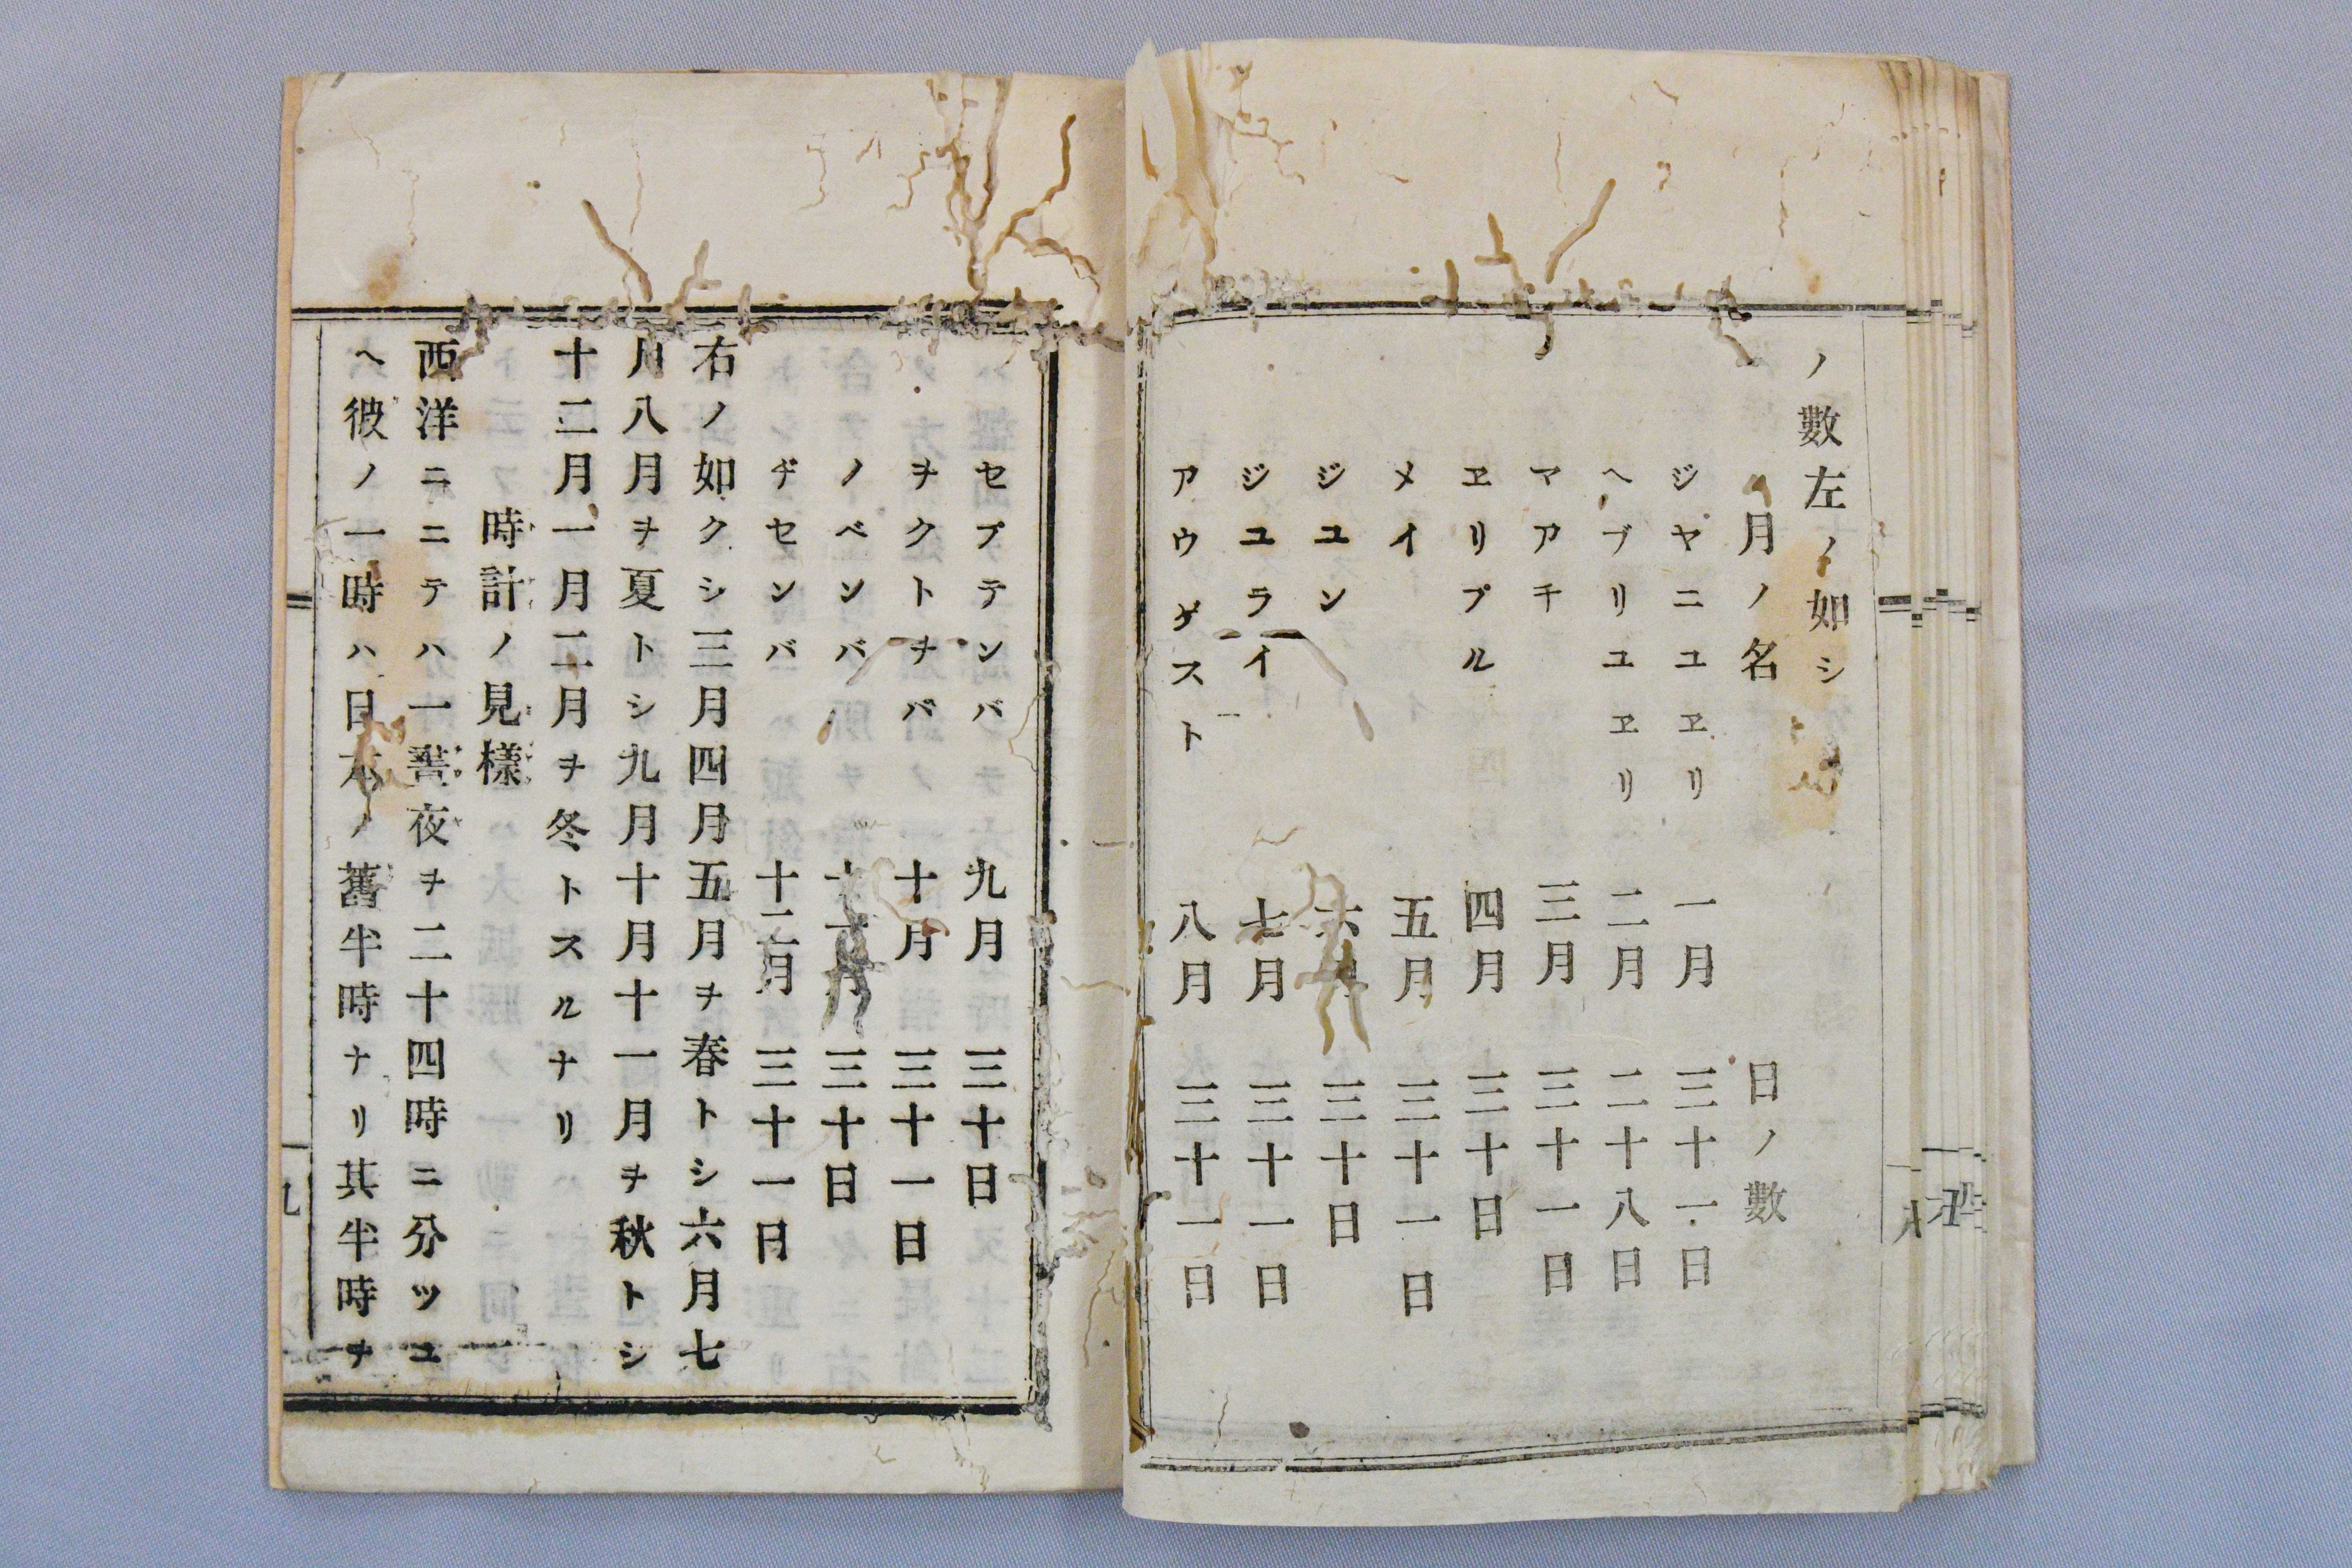 ノ數左ノ如シ
月ノ名 日ノ數
ジヤニユヱリ 一月 三十一日
ヘブリユヱリ 二月 二十八日
マアチ 三月 三十一日
ヱリプル 四月 三十日
メイ 五月 三十一日
ジユン 六月 三十日
ジユライ 七月 三十一日
アウゲスト 八月 三十一日
セプテンバ 九月 三十日
ヲクトヲバ 十月 三十一日
ノベンバ 十一月 三十日
ヂセンバ 十二月 三十一日
右ノ如クシ三月四月五月ヲ春トシ六月七
月八月ヲ夏トシ九月十月十一月ヲ秋トシ
十二月一月二月ヲ冬トスルナリ
時計ノ見樣
西洋ニニテハ一晝夜ヲ二十四時ニ分ツユ
ヘ彼ノ一時ハ日本ノ舊半時ナリ其半時ヲ